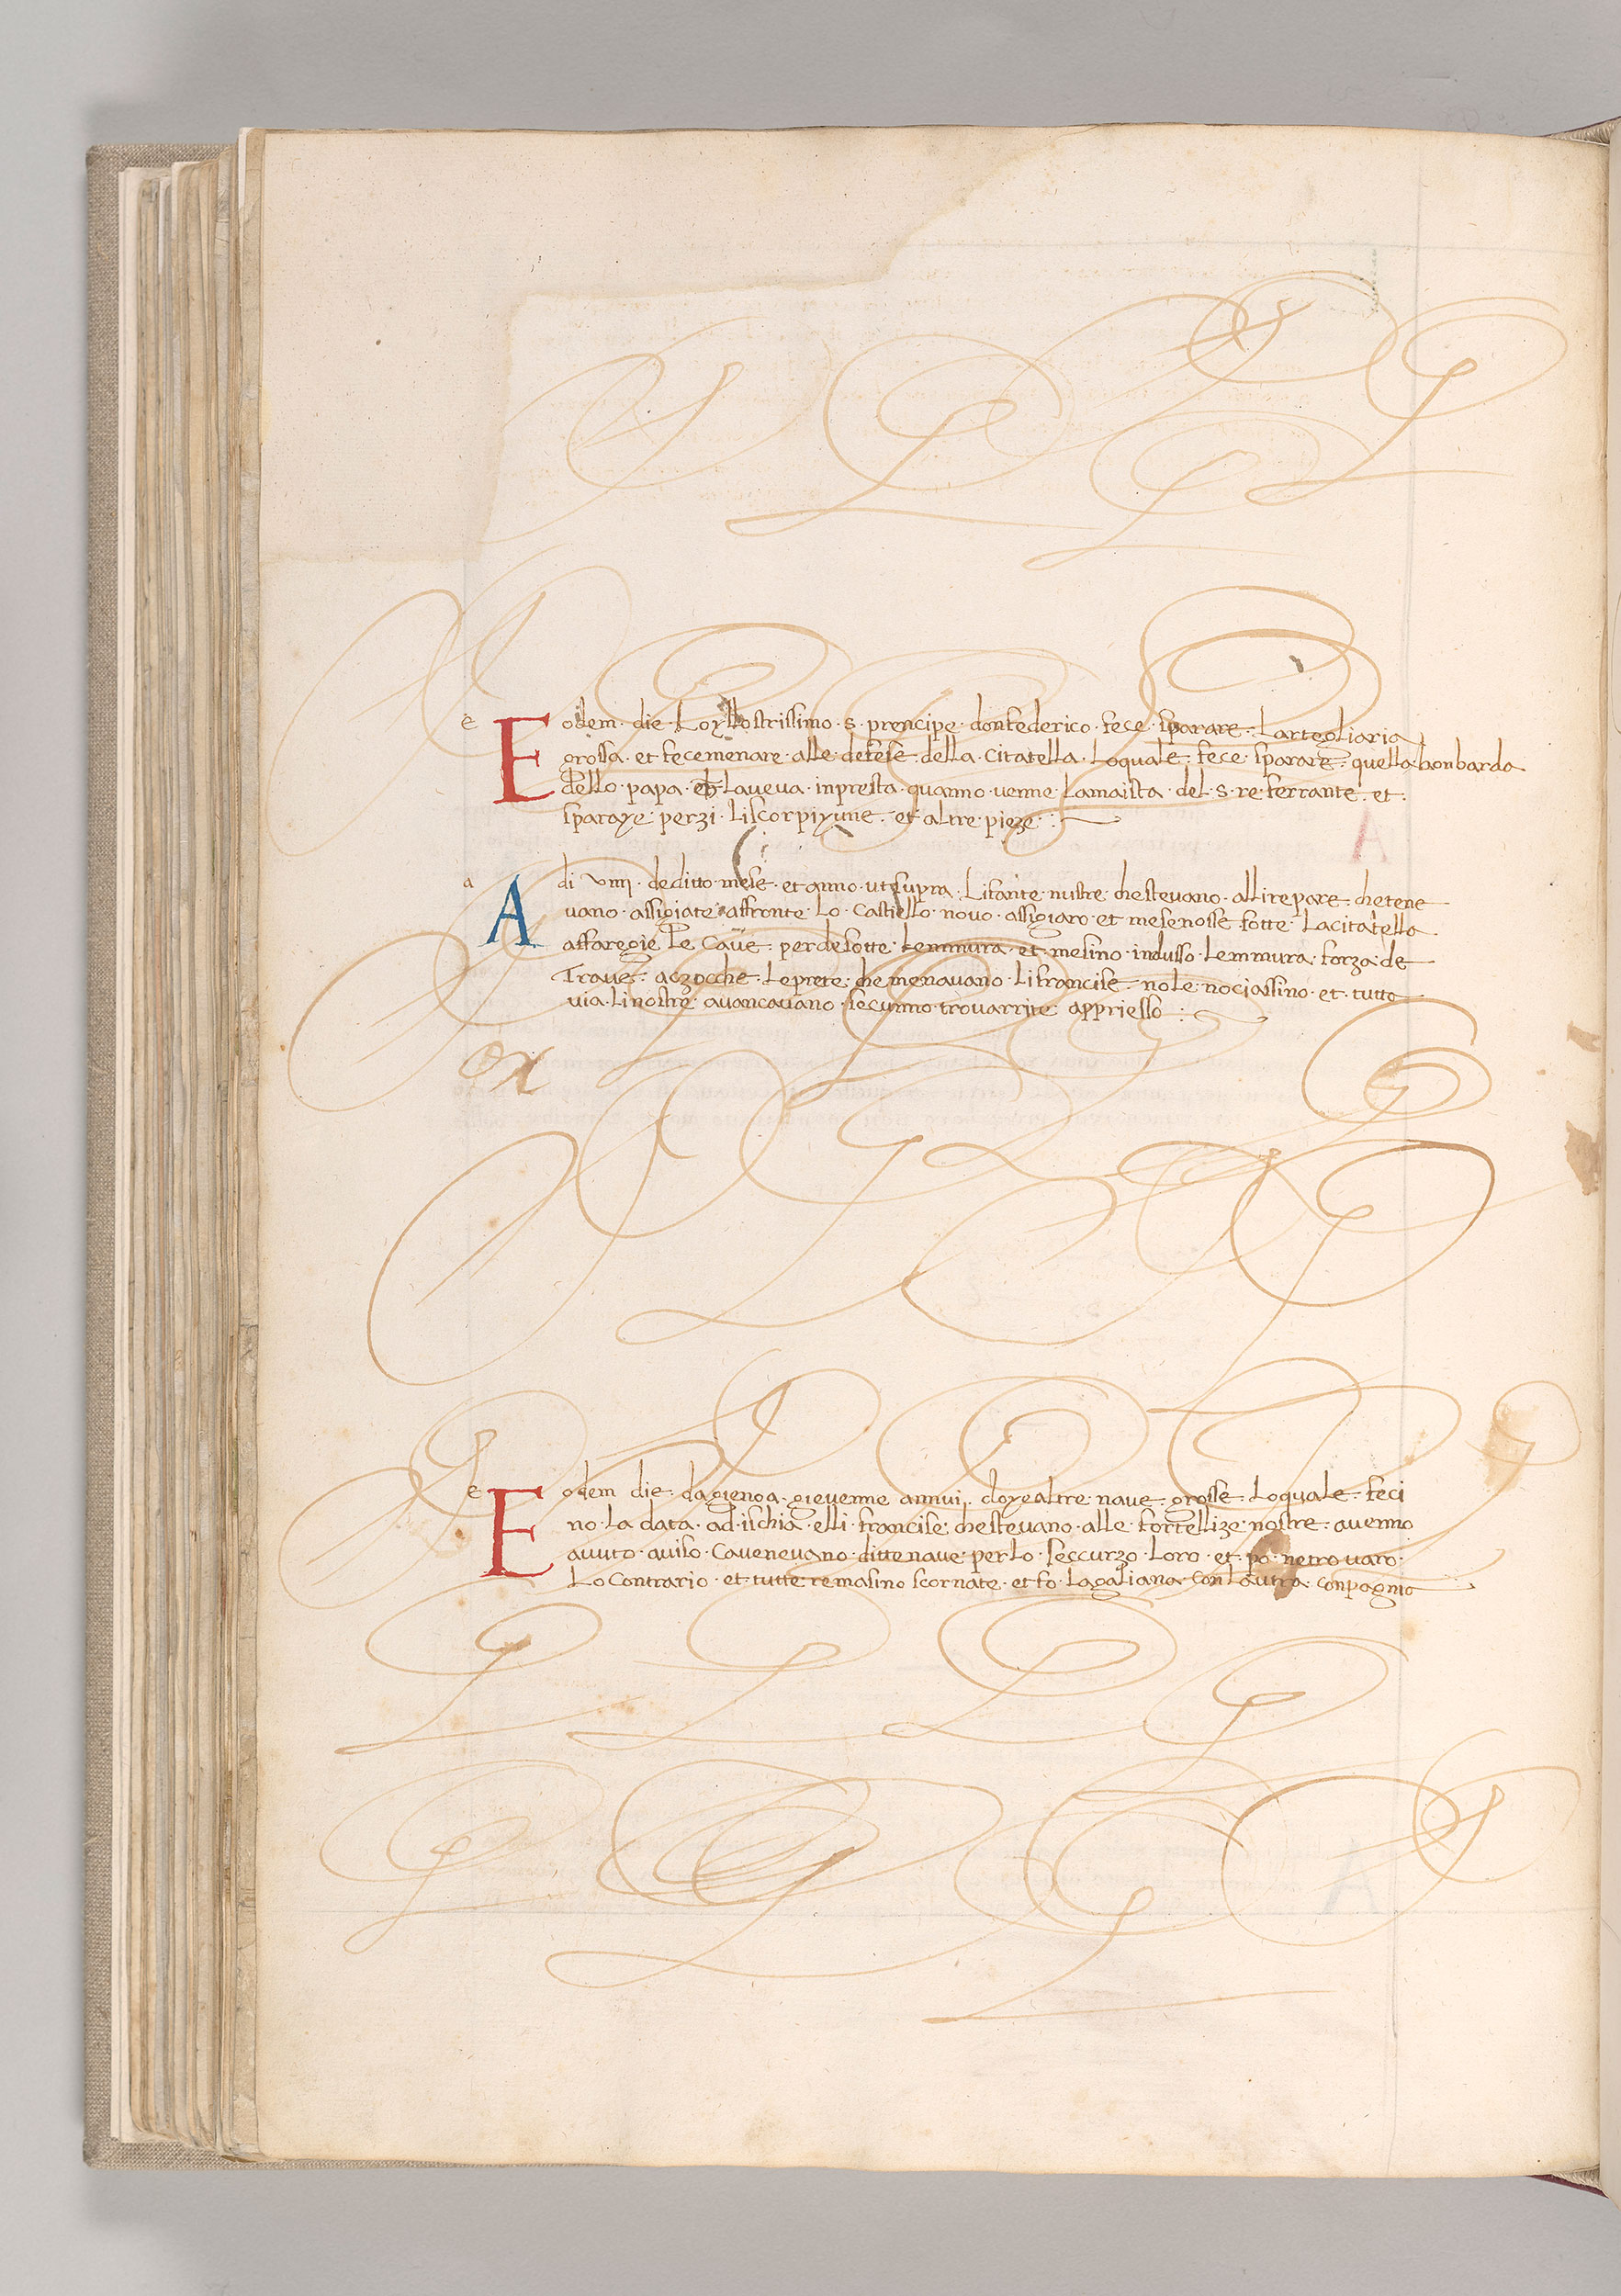 Eodem · die · Lo yllostrissimo · s · prencipe · donfederico · fece · sparare · Lartegliaria
grossa · et fecemenare · alle · defese · della · Citatella · Loquale · fece · sparare · quella bonbarda
dello · papa · Laveva · inpresta · quanno · venne · Lamaista · del · s · re · ferrante · et ·
sparaye · perzi · Liscorpiyune · et altre · pieze
Adi viiii · deditto · mese · et anno · ut supra · Lifante · nustre · chestevano · allirepare · chetene
vano · assigiate · affronte · Lo · Castiello · novo · assigiaro · et mesenosse sotte · Lacitatella
affaregie Le Cave · perdesotte · Lemmura · et · mesino · indusso · Lemmura · forza · de
Trave · aczocche · Leprete · che menavano · Lifrancise · nole nociassino · et · tutto
via · Linostre · avancavano · secunno · trovarrite · appriesso
ox
Eodem die · dagienoa · gievenne annui · doyealtre nave · grosse · Loquale · feci
no · La data · ad · ischia · elli · francise · chestevano · alle · fortellize · nostre · avenno
avuto · aviso · Cavenevano · dittenave · perLo · seccurzo · Loro · et · po · netrovaro ·
Lo Contrario · et · tutte remasino scornate · et fo · Lagaliana · con Lautra · conpagnio